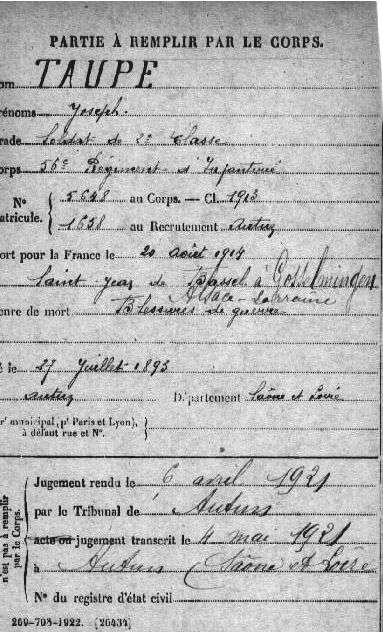 PARTIE À REMPLIR PAR LE CORPS.
om TAUPE
rénoms Joseph.
rade Soldat de 2e Classe
orps 56e Régiment d'Infanterie
N° atricule. { 5648 au Corps. — Cl. 1913
1658 au Recrutement Autun
ort pour la France le 20 août 1914
Saint Jean de Bassel à Gosselmingen
Alsace-Lorraine
enre de mort Blessures de guerre
é le 27 Juillet 1893
Autun Département Saône et Loire
rt municipal, (pr Paris et Lyon), à défaut rue et N°. }
n'est pas à remplir par le Corps.
Jugement rendu le 6 avril 1921
par le Tribunal de Autun
acte ou jugement transcrit le 4 mai 1921
à Autun (Saône et Loire
N° du registre d'état civil
269-708-1922. [26434]